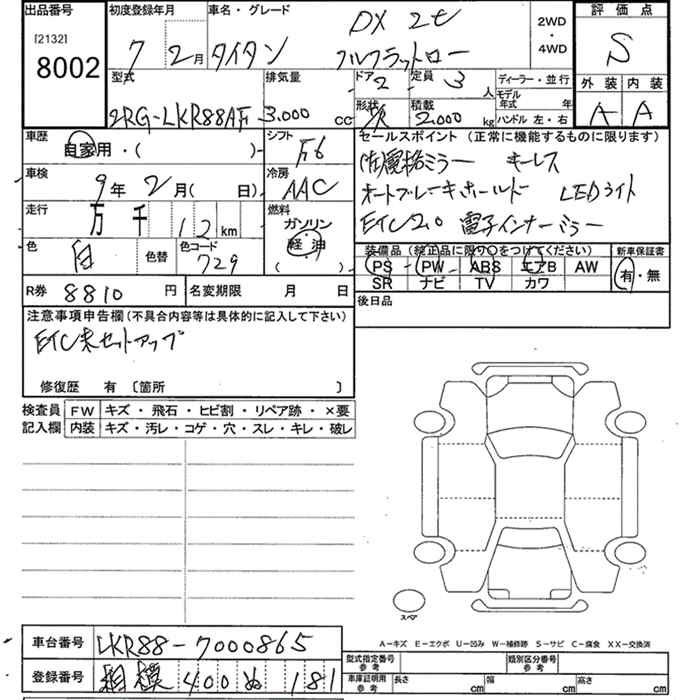 出品番号
[2132]
8002
初度登録年月
7 2月
車名・グレード
タイタン
DX 2t
フルフラットロー
2WD
・
4WD
評価点
S
外装 内装
A A
型式
2RG-LKR88AF
排気量
3.000 cc
ドア
2
定員
3 人
形状
積載
2000 kg
ディーラー・並行
モデル年式 年
ハンドル 左・右
車歴
自家用・( )
シフト
F6
車検
9年 2月( 日)
冷房
AAC
走行
万 千 12 km
燃料
ガソリン
軽油
( )
色
白
色替
色コード
729
セールスポイント(正常に機能するものに限ります)
ミラー キーレス
オートブレーキホールド LEDライト
ETC2.0 電子インナーミラー
装備品(純正品に限り○をつけてください)
PS PW ABS エアB AW
SR ナビ TV カワ
新車保証書
有・無
R券 8810 円
名変期限 月 日
後日品
注意事項申告欄(不具合内容等は具体的に記入して下さい)
ETC未セットアップ
修復歴 有〔箇所 〕
検査員
記入欄
FW キズ・飛石・ヒビ割・リペア跡・×要
内装 キズ・汚レ・コゲ・穴・スレ・キレ・破レ
スペア
A-キズ E-エクボ U-凹み W-補修跡 S-サビ C-腐食 XX-交換済
車台番号 LKR88-7000865
登録番号 相模 400 ぬ 181
型式指定番号
参考
類別区分番号
参考
車庫証明用
参考
長さ cm 幅 cm 高さ cm